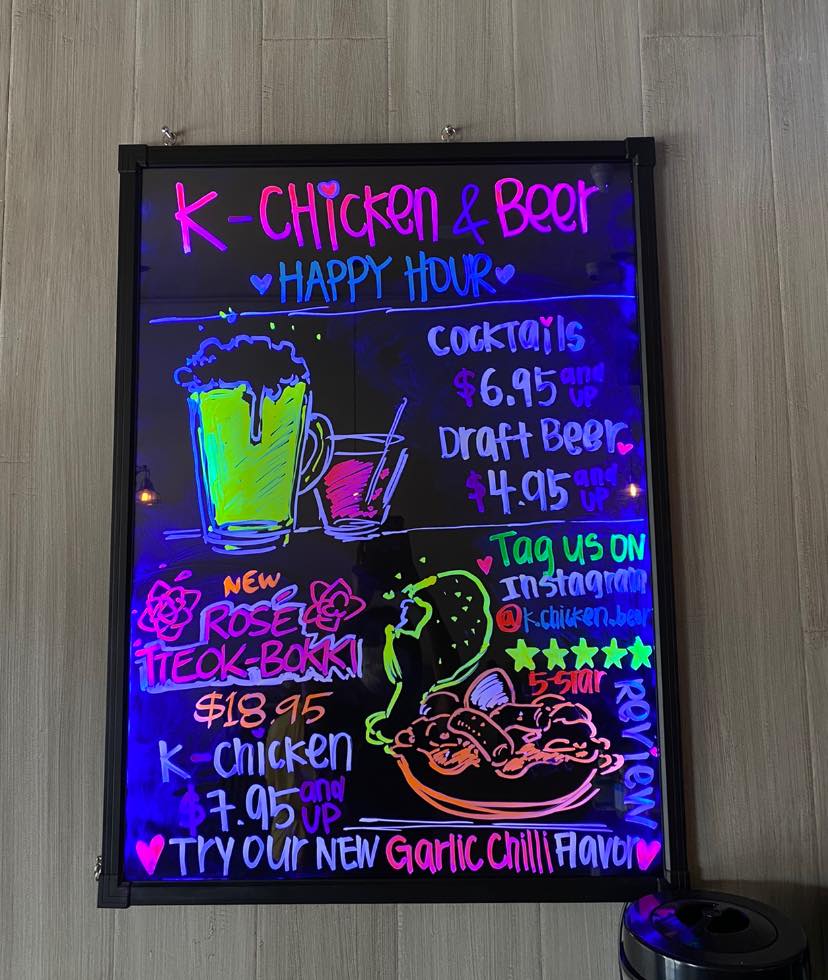 K-CHicken & Beer
HAPPY HOUR
COCKTails
$6.95 and UP
Draft Beer
$4.95 and UP
Tag us ON
Instagram
@k.chicken.beer
5-Star
Review
NEW
ROSÉ
TTEOK-BOKKI
$18.95
K-chicken
$7.95 and UP
Try our NEW Garlic Chilli Flavor